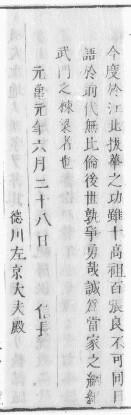 今度於江北拔羣之功雖十高祖百張良不可同日
語於前代無比倫後世孰爭勇哉誠爲當家之綱紀
武門之棟梁者也
元龜元年六月二十八日　信長
德川左京大夫殿